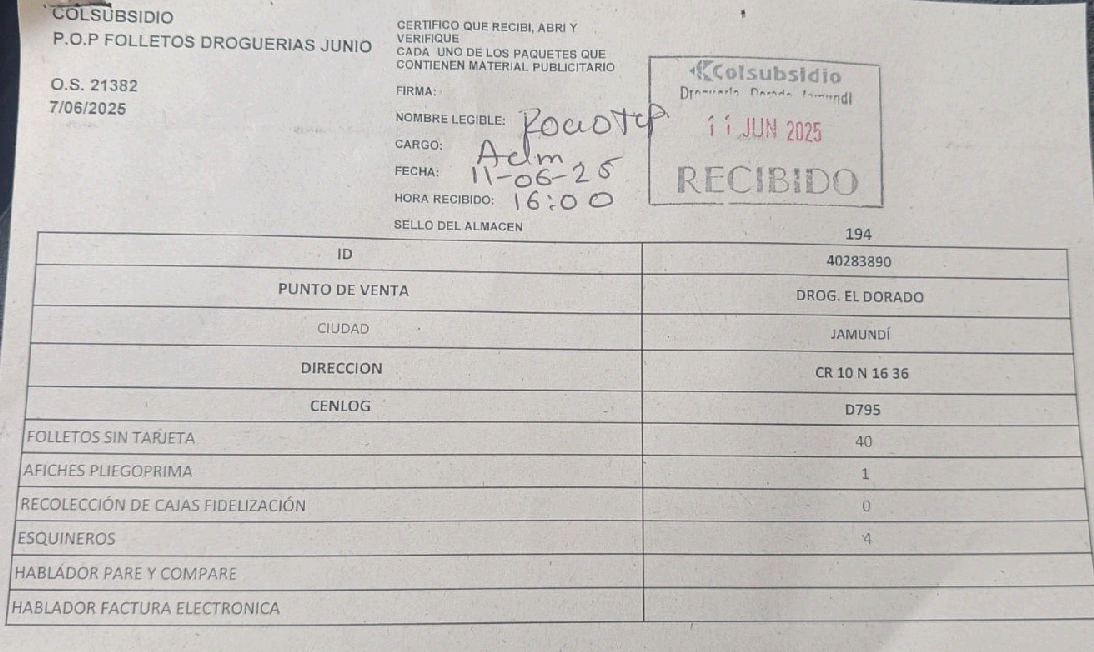 COLSUBSIDIO
P.O.P FOLLETOS DROGUERIAS JUNIO
O.S. 21382
7/06/2025
CERTIFICO QUE RECIBI, ABRI Y
VERIFIQUE
CADA UNO DE LOS PAQUETES QUE
CONTIENEN MATERIAL PUBLICITARIO
FIRMA:
NOMBRE LEGIBLE:
CARGO: Adm
FECHA: 11-06-25
HORA RECIBIDO: 16:00
SELLO DEL ALMACEN
Colsubsidio
11 JUN 2025
RECIBIDO
194
ID 40283890
PUNTO DE VENTA DROG. EL DORADO
CIUDAD JAMUNDÍ
DIRECCION CR 10 N 16 36
CENLOG D795
FOLLETOS SIN TARJETA 40
AFICHES PLIEGOPRIMA 1
RECOLECCIÓN DE CAJAS FIDELIZACIÓN 0
ESQUINEROS 4
HABLADOR PARE Y COMPARE
HABLADOR FACTURA ELECTRONICA